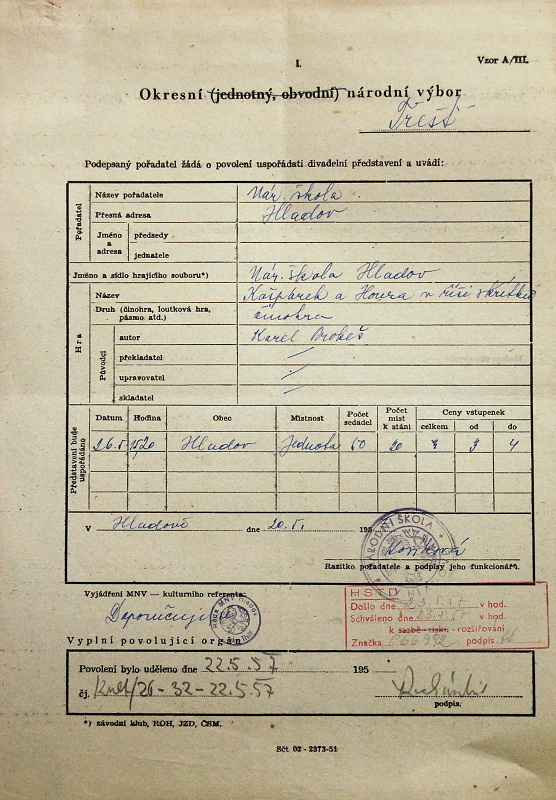 I.
Vzor A/III.
Okresní (jednotný, obvodní) národní výbor
Třešť
Podepsaný pořadatel žádá o povolení uspořádati divadelní představení a uvádí:
Pořadatel
Název pořadatele Nár. škola
Přesná adresa Hladov
Jméno a adresa
předsedy
jednatele
Jméno a sídlo hrajícího souboru*) Nár. škola Hladov
Hra
Název Kašpárek a Honza v říši skřítků
Druh (činohra, loutková hra, pásmo atd.) činohra
Původci
autor Karel Brokeš
překladatel /
upravovatel /
skladatel
Představení bude uspořádáno
Datum Hodina Obec Místnost Počet sedadel Počet míst k stání Ceny vstupenek
celkem od do
26.5. Hladov Jednota 60 20 3 4
V Hladově dne 20.V. 195
NÁRODNÍ ŠKOLA
Razítko pořadatele a podpisy jeho funkcionářů.
Vyjádření MNV — kulturního referenta:
Doporučuji
Rada MNV Hladov
Vyplní povolující orgán
HSTD
Došlo dne v hod.
Schváleno dne v hod.
k sazbě - tisku - rozšiřování
Značka podpis
Povolení bylo uděleno dne 22.5.57 195
čj. Kult/26-32-22.5.57
podpis.
*) závodní klub, ROH, JZD, ČSM.
Sčt 02 - 2373-51